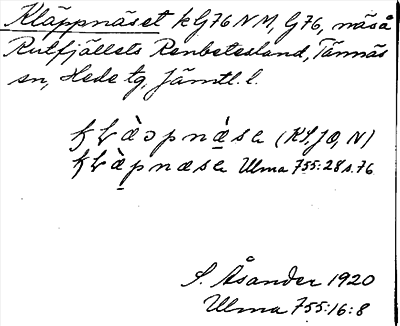 Kläppnäset k G76 NM, G76, näs å
Rutfjällets Renbetesland, Tännäs
sn, Hede tg, Jämtl. l.
(KS, JO, N)
Ulma 755:28 s. 76
S. Åsander 1920
Ulma 755:16:8